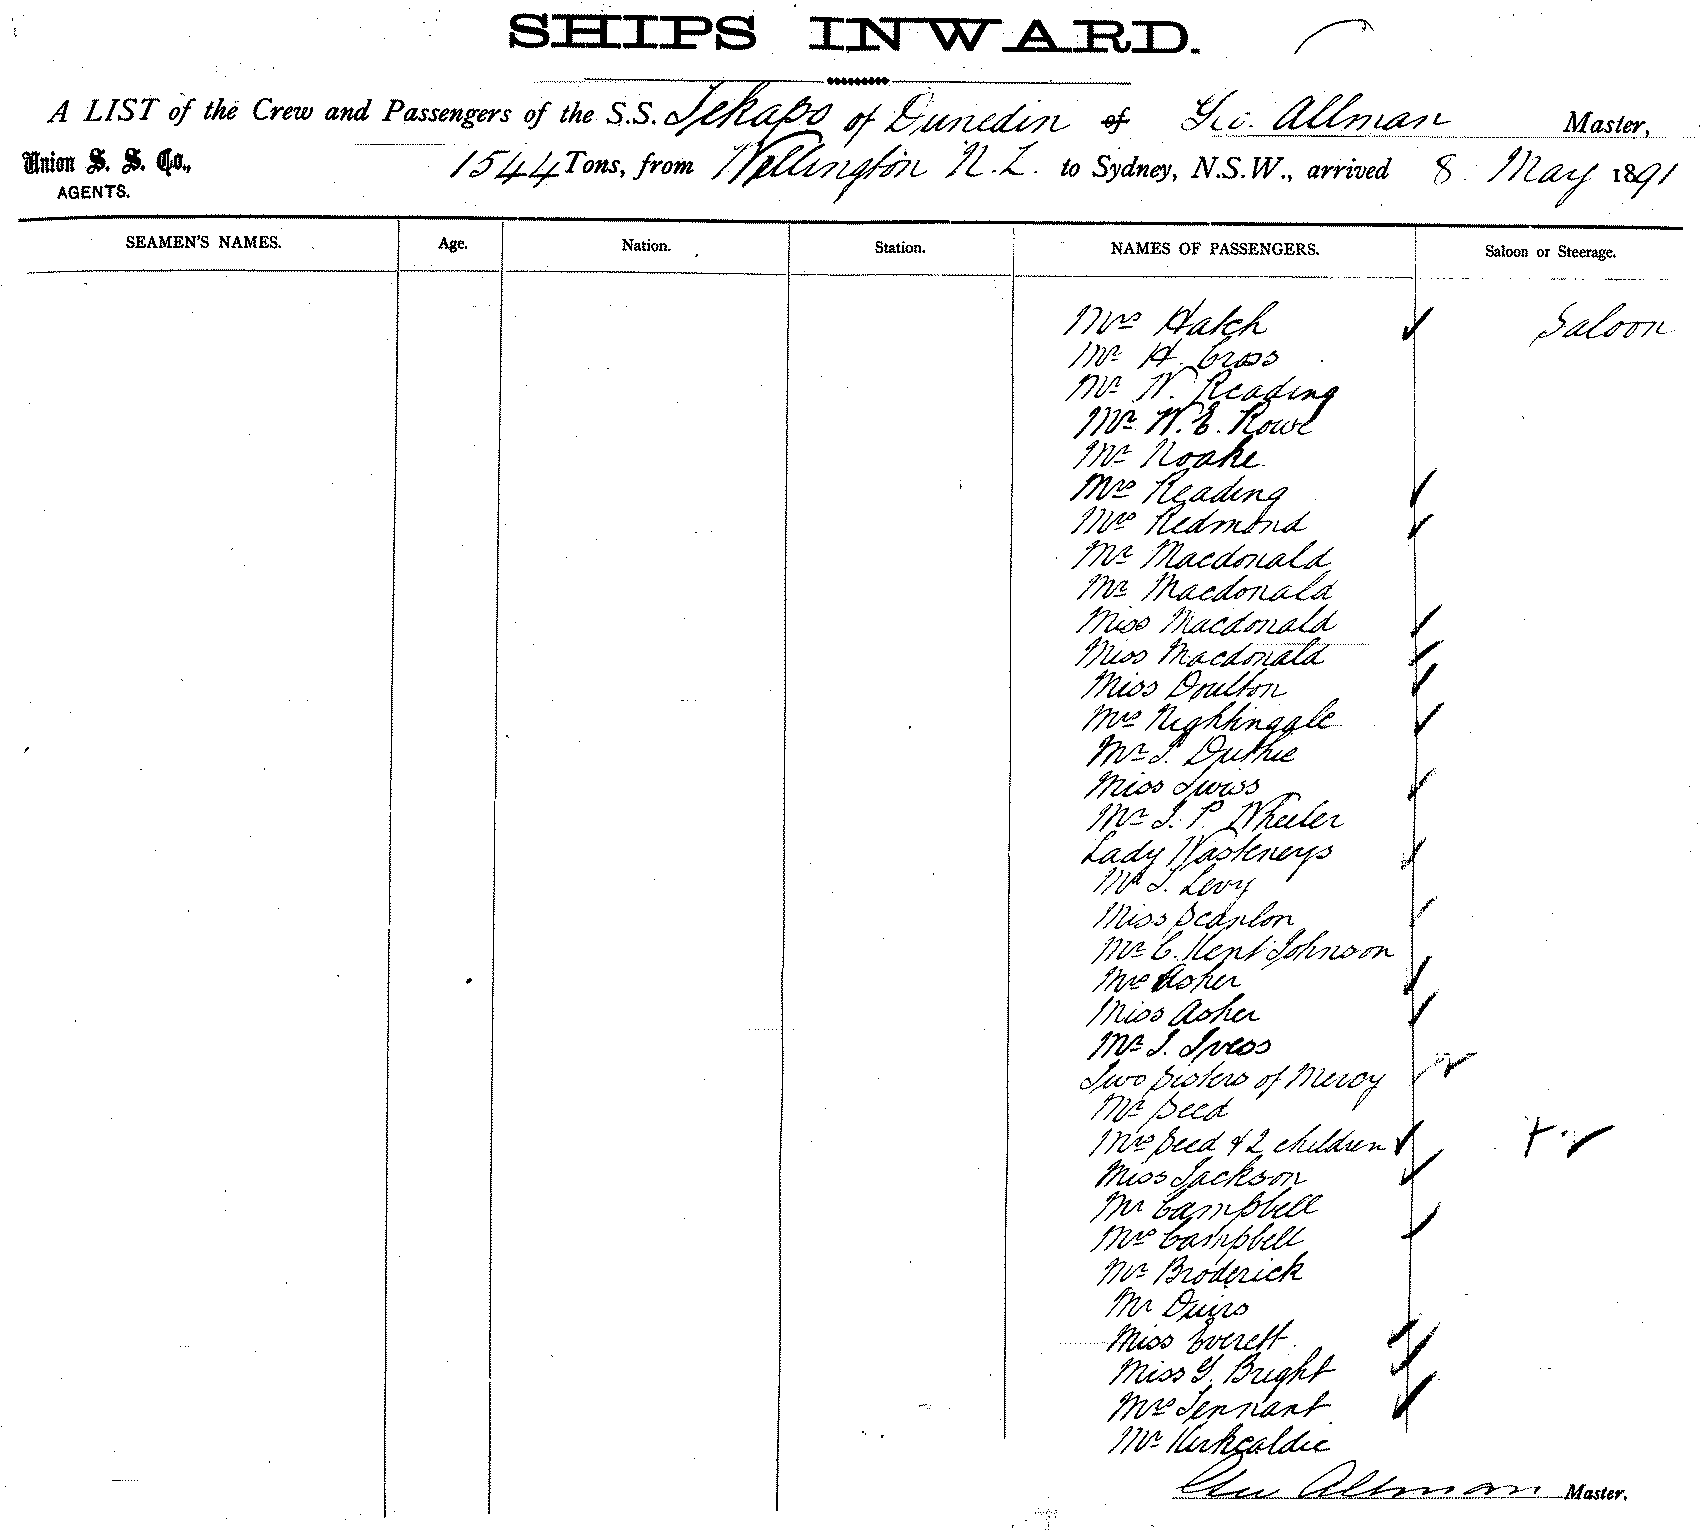 SHIPS INWARD.
A LIST of the Crew and Passengers of the S.S. Tekapo of Dunedin of Geo. Allman Master,
Union S. S. Co.,
AGENTS.
1544 Tons, from Wellington N.Z. to Sydney, N.S.W., arrived 8 May 1891
SEAMEN'S NAMES. Age. Nation. Station. NAMES OF PASSENGERS. Saloon or Steerage.
Mrs Hatch Saloon
Mr H. Cross
Mr W. Reading
Mr W. E. Rowe
Mr Noake
Mrs Reading
Mrs Redmond
Mr Macdonald
Mr Macdonald
Miss Macdonald
Miss Macdonald
Miss Doulton
Mrs Nightingale
Mr J. Duthie
Miss Swiss
Mr J. P. Wheeler
Lady Wasteneys
Mr J. Levy
Miss Scanlon
Mr C. Kent Johnson
Mrs Asher
Miss Asher
Mr J. Ivess
Two Sisters of Mercy
Mr Seed
Mrs Seed & 2 children
Miss Jackson
Mr Campbell
Mrs Campbell
Mr Broderick
Mr
Miss Everett
Miss G. Bright
Mrs Tennant
Mr Kirkcaldie
Geo Allman Master.